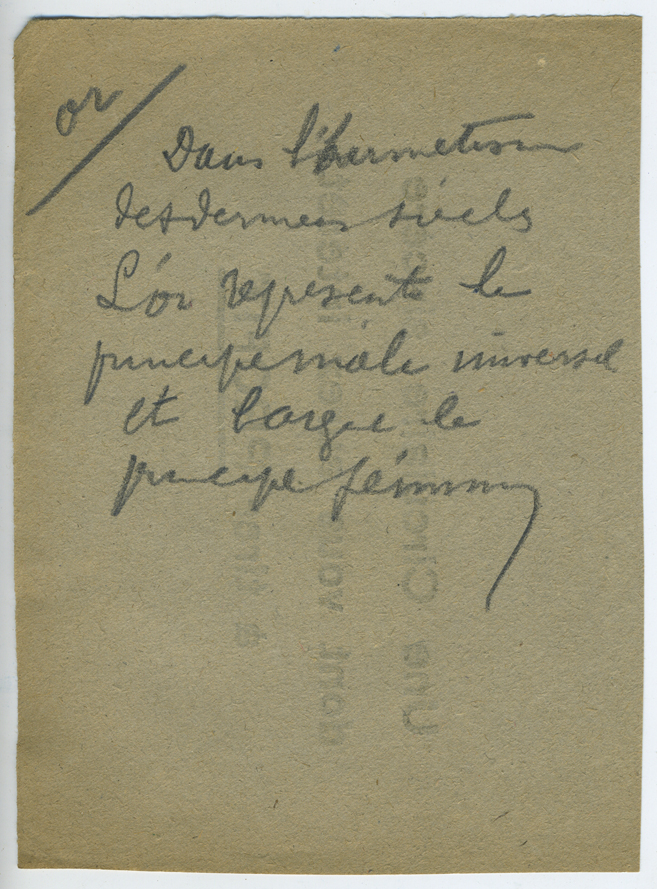 or /
Dans l'hermetism
des derniers siècles
L'or represente le
principe mâle universel
et l'argent le
principe féminin